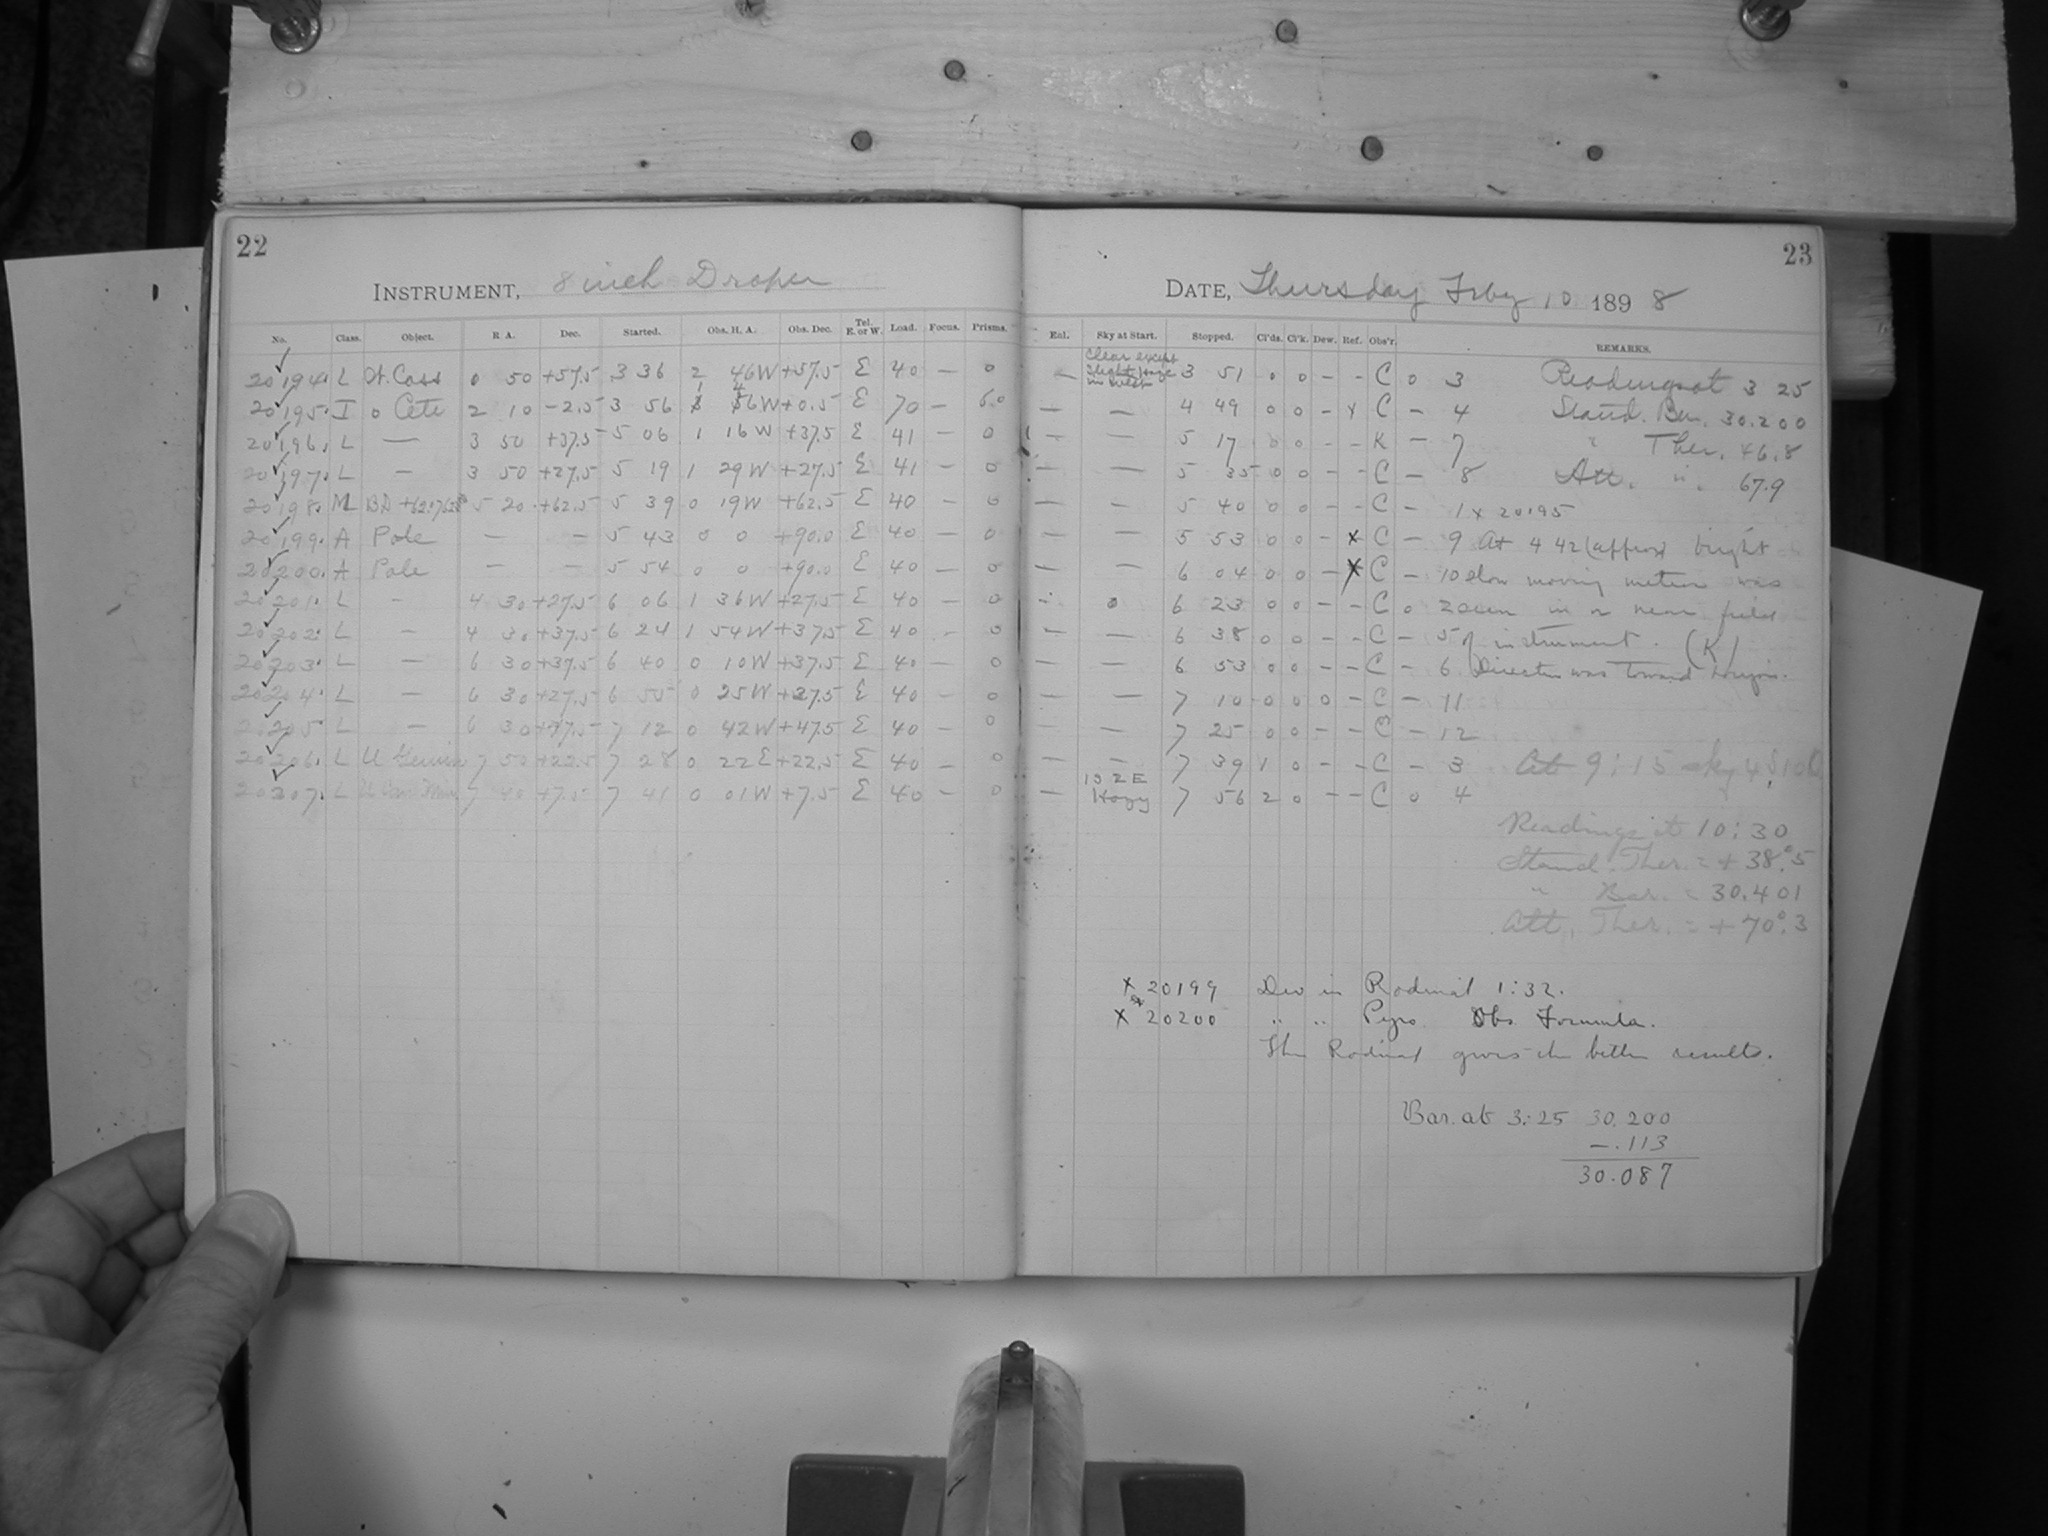 22
INSTRUMENT, 8 inch Draper
No. Class. Object. R A. Dec. Started. Obs. H. A. Obs. Dec. Tel. E. or W. Load. Focus. Prisms.
20194. L Cass 0 50 +57.5 3 36 2 46W +57.5 E 40 — 0
20195. I o Ceti 2 10 -2.5 3 56 1 46W +0.5 E 70 — 6.0
20196. L — 3 50 +37.5 5 06 1 16W +37.5 E 41 — 0
20197. L — 3 50 +27.5 5 19 1 29W +27.5 E 41 — 0
20198. M BD 5 20 +62.5 5 39 0 19W +62.5 E 40 — 0
20199. A Pole — — 5 43 0 0 +90.0 E 40 — 0
20200. A Pole — — 5 54 0 0 +90.0 E 40 — 0
20201. L - 4 30 +27.5 6 06 1 36W +27.5 E 40 — 0
20202. L — 4 30 +37.5 6 24 1 54W +37.5 E 40 - 0
20203. L — 6 30 +37.5 6 40 0 10W +37.5 E 40 — 0
20204. L — 6 30 +27.5 6 55 0 25W +27.5 E 40 — 0
20205. L — 6 30 +47.5 7 12 0 42W +47.5 E 40 — 0
20206. L U 7 50 +22.5 7 28 0 22E +22.5 E 40 — 0
20207. L U 7 40 +7.5 7 41 0 01W +7.5 E 40 — 0
23
DATE, Thursday Feby 10 1898
Enl. Sky at Start. Stopped. Cl'ds. Cl'k. Dew. Ref. Obs'r. REMARKS.
Clear except
slight haze
in West
— 3 51 0 0 - - C 0 3 Readings at 3 25
— — 4 49 0 0 - x C - 4 Stand. Bar. 30.200
— — 5 17 0 0 - - K - 7 " Ther. 46.8
— — 5 35 0 0 - - C - 8 Att. " 67.9
— — 5 40 0 0 - - C - 1 x 20195
— — 5 53 0 0 - x C - 9 At 4 42 (approx) bright
— — 6 04 0 0 - x C - 10 slow moving meteor was
- 0 6 23 0 0 - - C 0 2 seen in or near field
— — 6 38 0 0 - - C - 5 of instrument. (K)
— — 6 53 0 0 - - C - 6 Direction was toward horizon.
— — 7 10 0 0 0 - C - 11
— — 7 25 0 0 - - C - 12
— — 7 39 1 0 - - C - 3 At 9:15 sky
10 2 E
— Hazy 7 56 2 0 - - C 0 4
Readings at 10:30
Stand. Ther. = + 38°.5
" Bar. = 30.401
Att. Ther. = + 70°.3
x 20199 Dev in Rodinal 1:32.
x 20200 " " Pyro Obs Formula.
The Rodinal gives the better results.
Bar. at 3:25 30.200
-.113
30.087